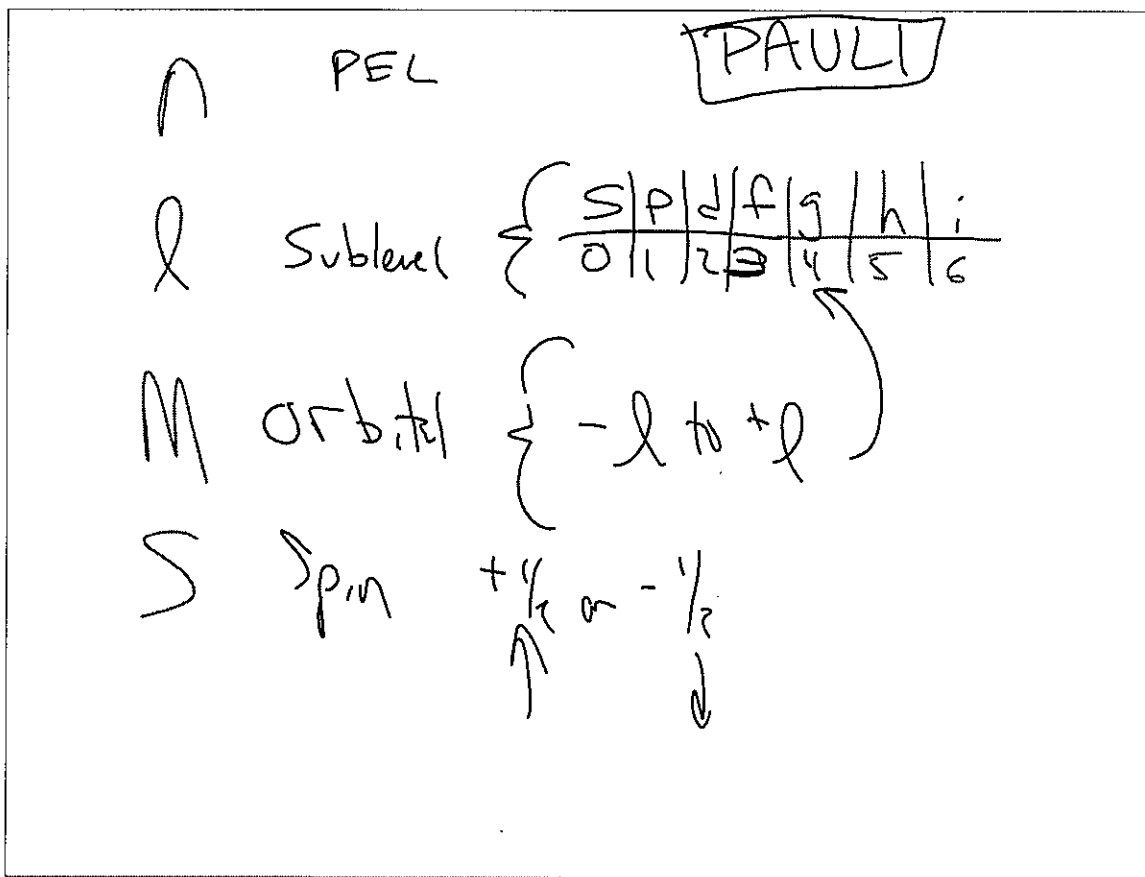 n PEL PAULI
l Sublevel { S | p | d | f | g | h | i
0 | 1 | 2 | 3 | 4 | 5 | 6
M Orbital { -l to +l
S Spin +1/2 or -1/2